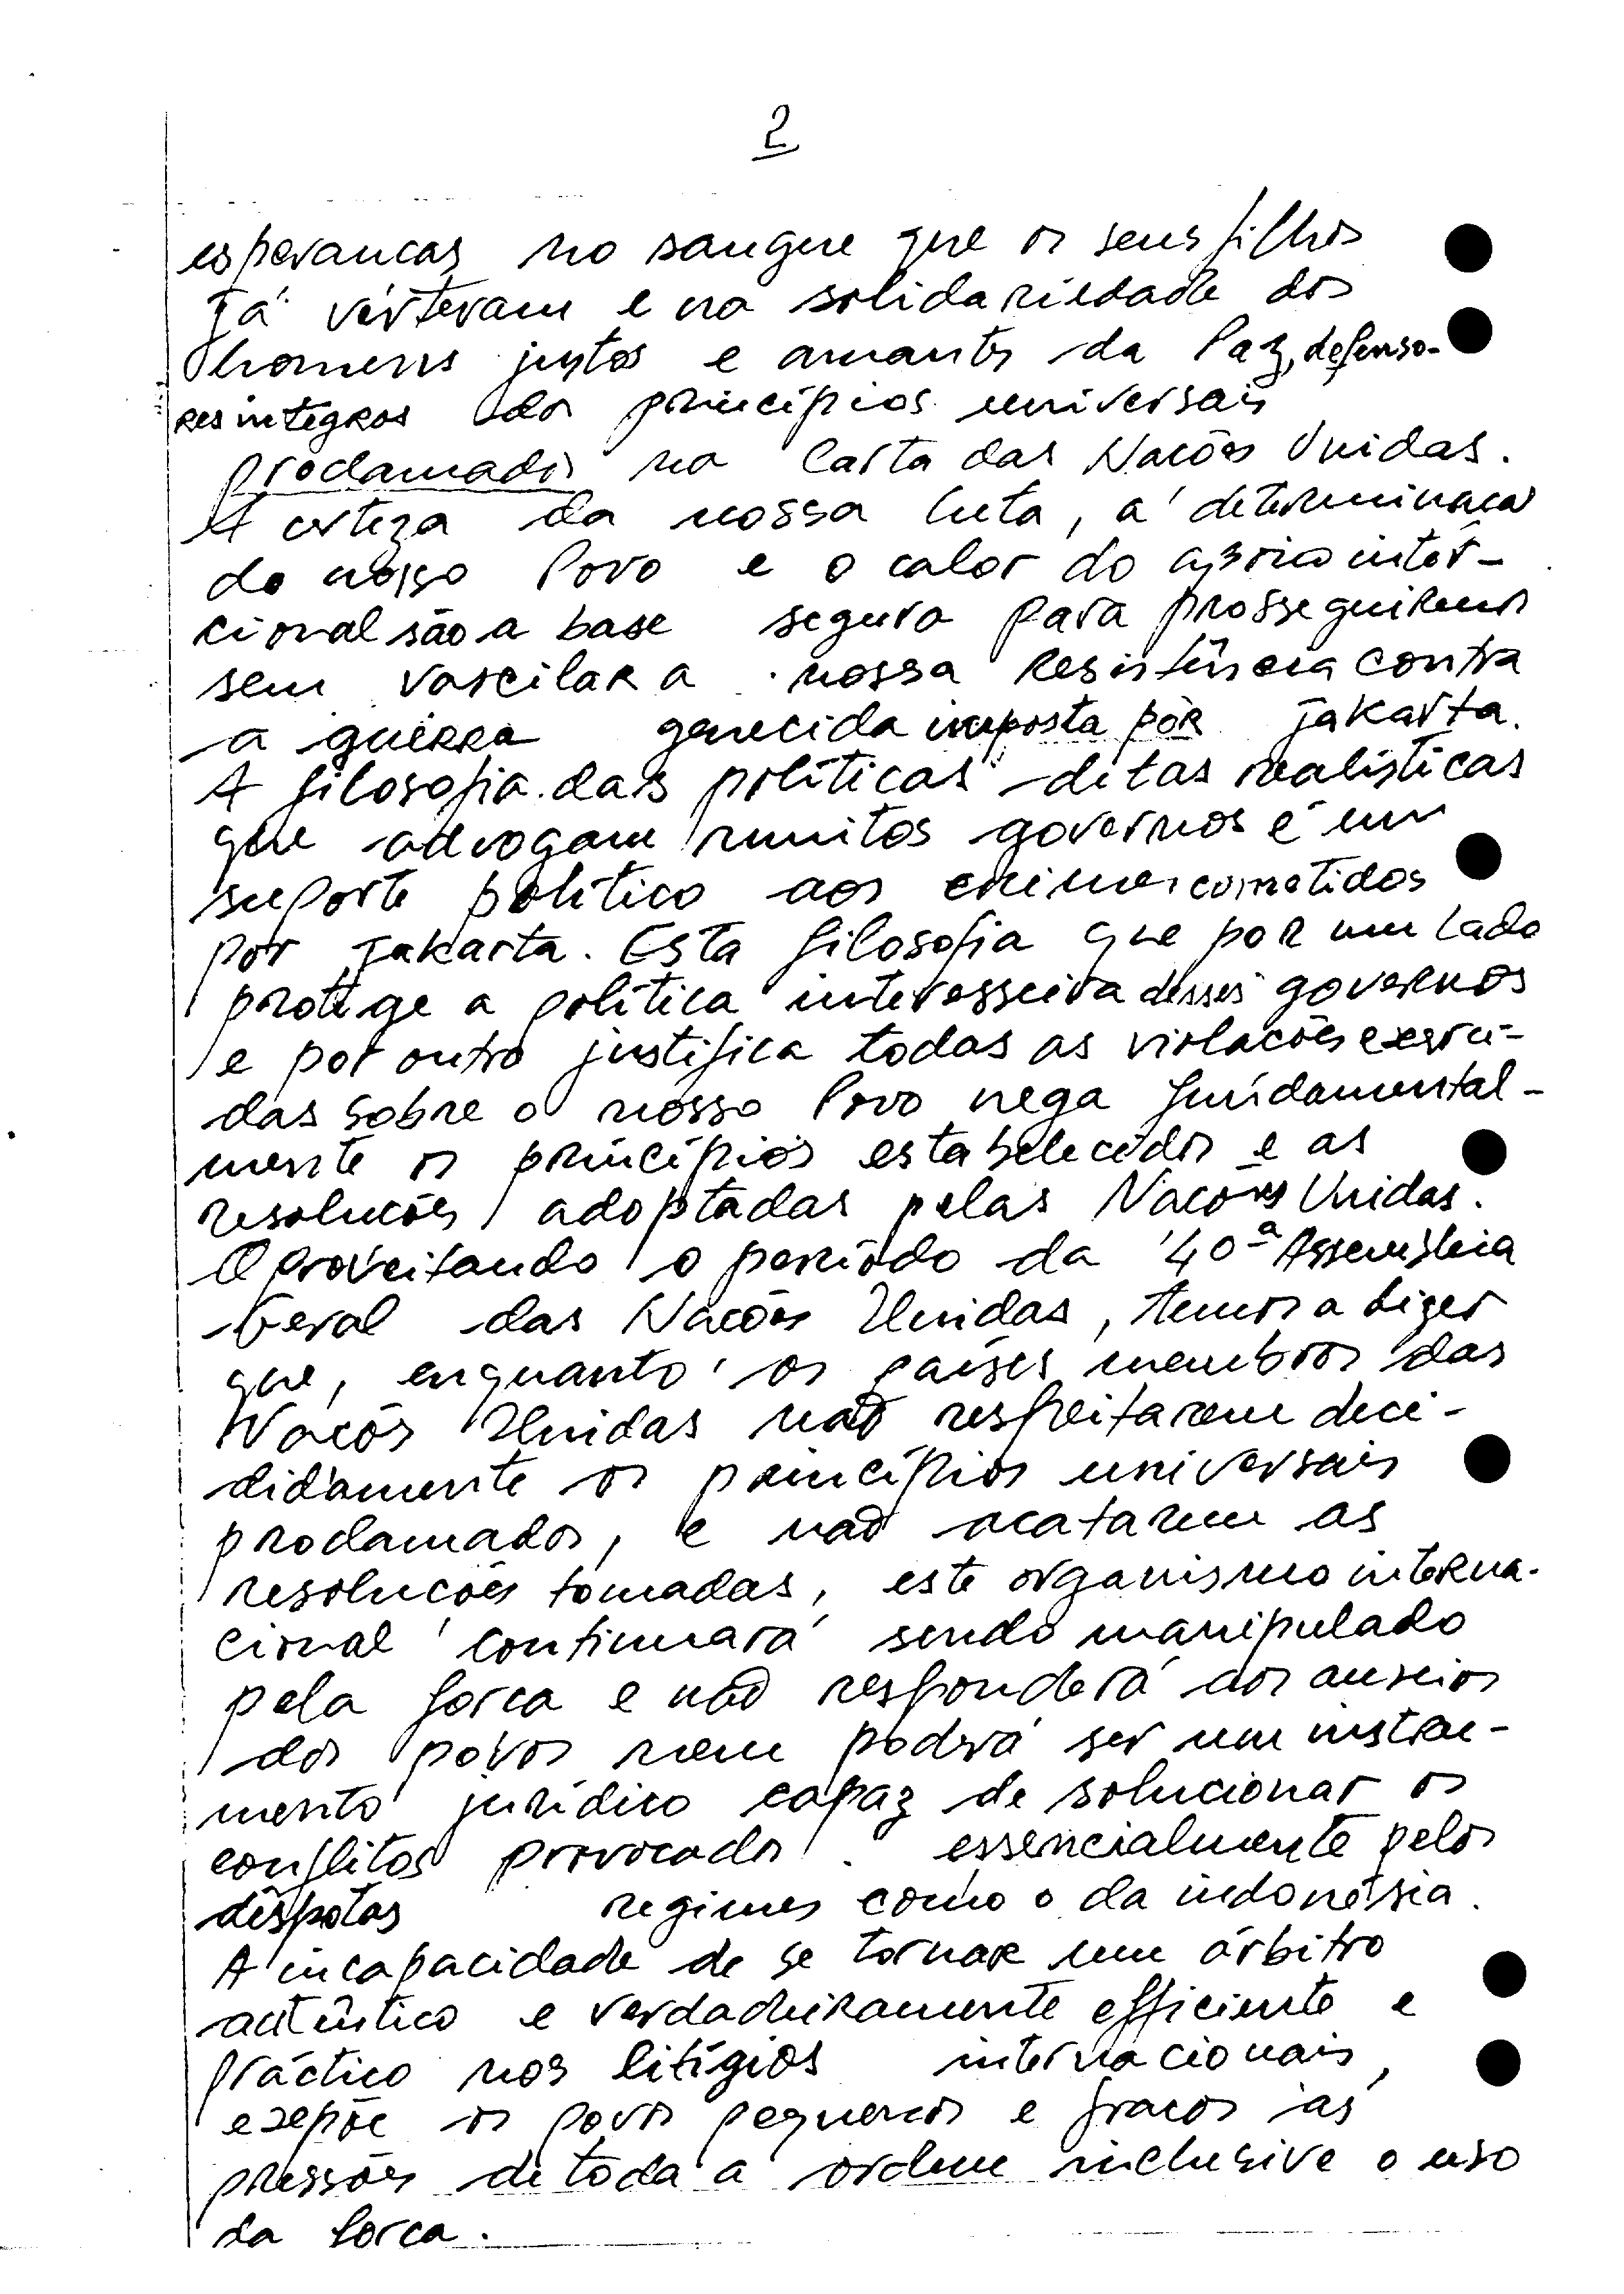 2
esperancas no sangue que os seus filhos
já verteram e na solidariedade dos
homens justos e amantes da Paz, defenso-
res integros dos princípios universais
proclamados na Carta das Nacões Unidas.
A certeza da nossa luta, a determinacao
do nosso Povo e o calor do apoio inter-
cional são a base segura para prosseguirmos
sem vascilar a nossa resistência contra
a guerra genecida imposta por Jakarta.
A filosofia das políticas ditas realísticas
que advogam muitos governos é um
suporte político aos crimes cometidos
por Jakarta. Esta filosofia que por um lado
protege a política interesseira desses governos
e por outro justifica todas as violacões exerci-
das sobre o nosso Povo nega fundamental-
mente os princípios estabelecidos e as
resolucões adoptadas pelas Nacões Unidas.
Aproveitando o período da 40ª Assembleia
Geral das Nacões Unidas, temos a dizer
que, enquanto os países membros das
Nacões Unidas não respeitarem deci-
didamente os princípios universais
proclamados, e não acatarem as
resolucões tomadas, este organismo interna-
cional continuará sendo manipulado
pela forca e não responderá aos anseios
dos povos nem poderá ser um instru-
mento jurídico capaz de solucionar os
conflitos provocados essencialmente pelos
déspotas regimes como o da indonésia.
A incapacidade de se tornar um árbitro
autêntico e verdadeiramente efficiente e
práctico nos litígios internacionais,
expõe os povos pequenos e fracos às
pressões de toda a ordem inclusive o uso
da forca.